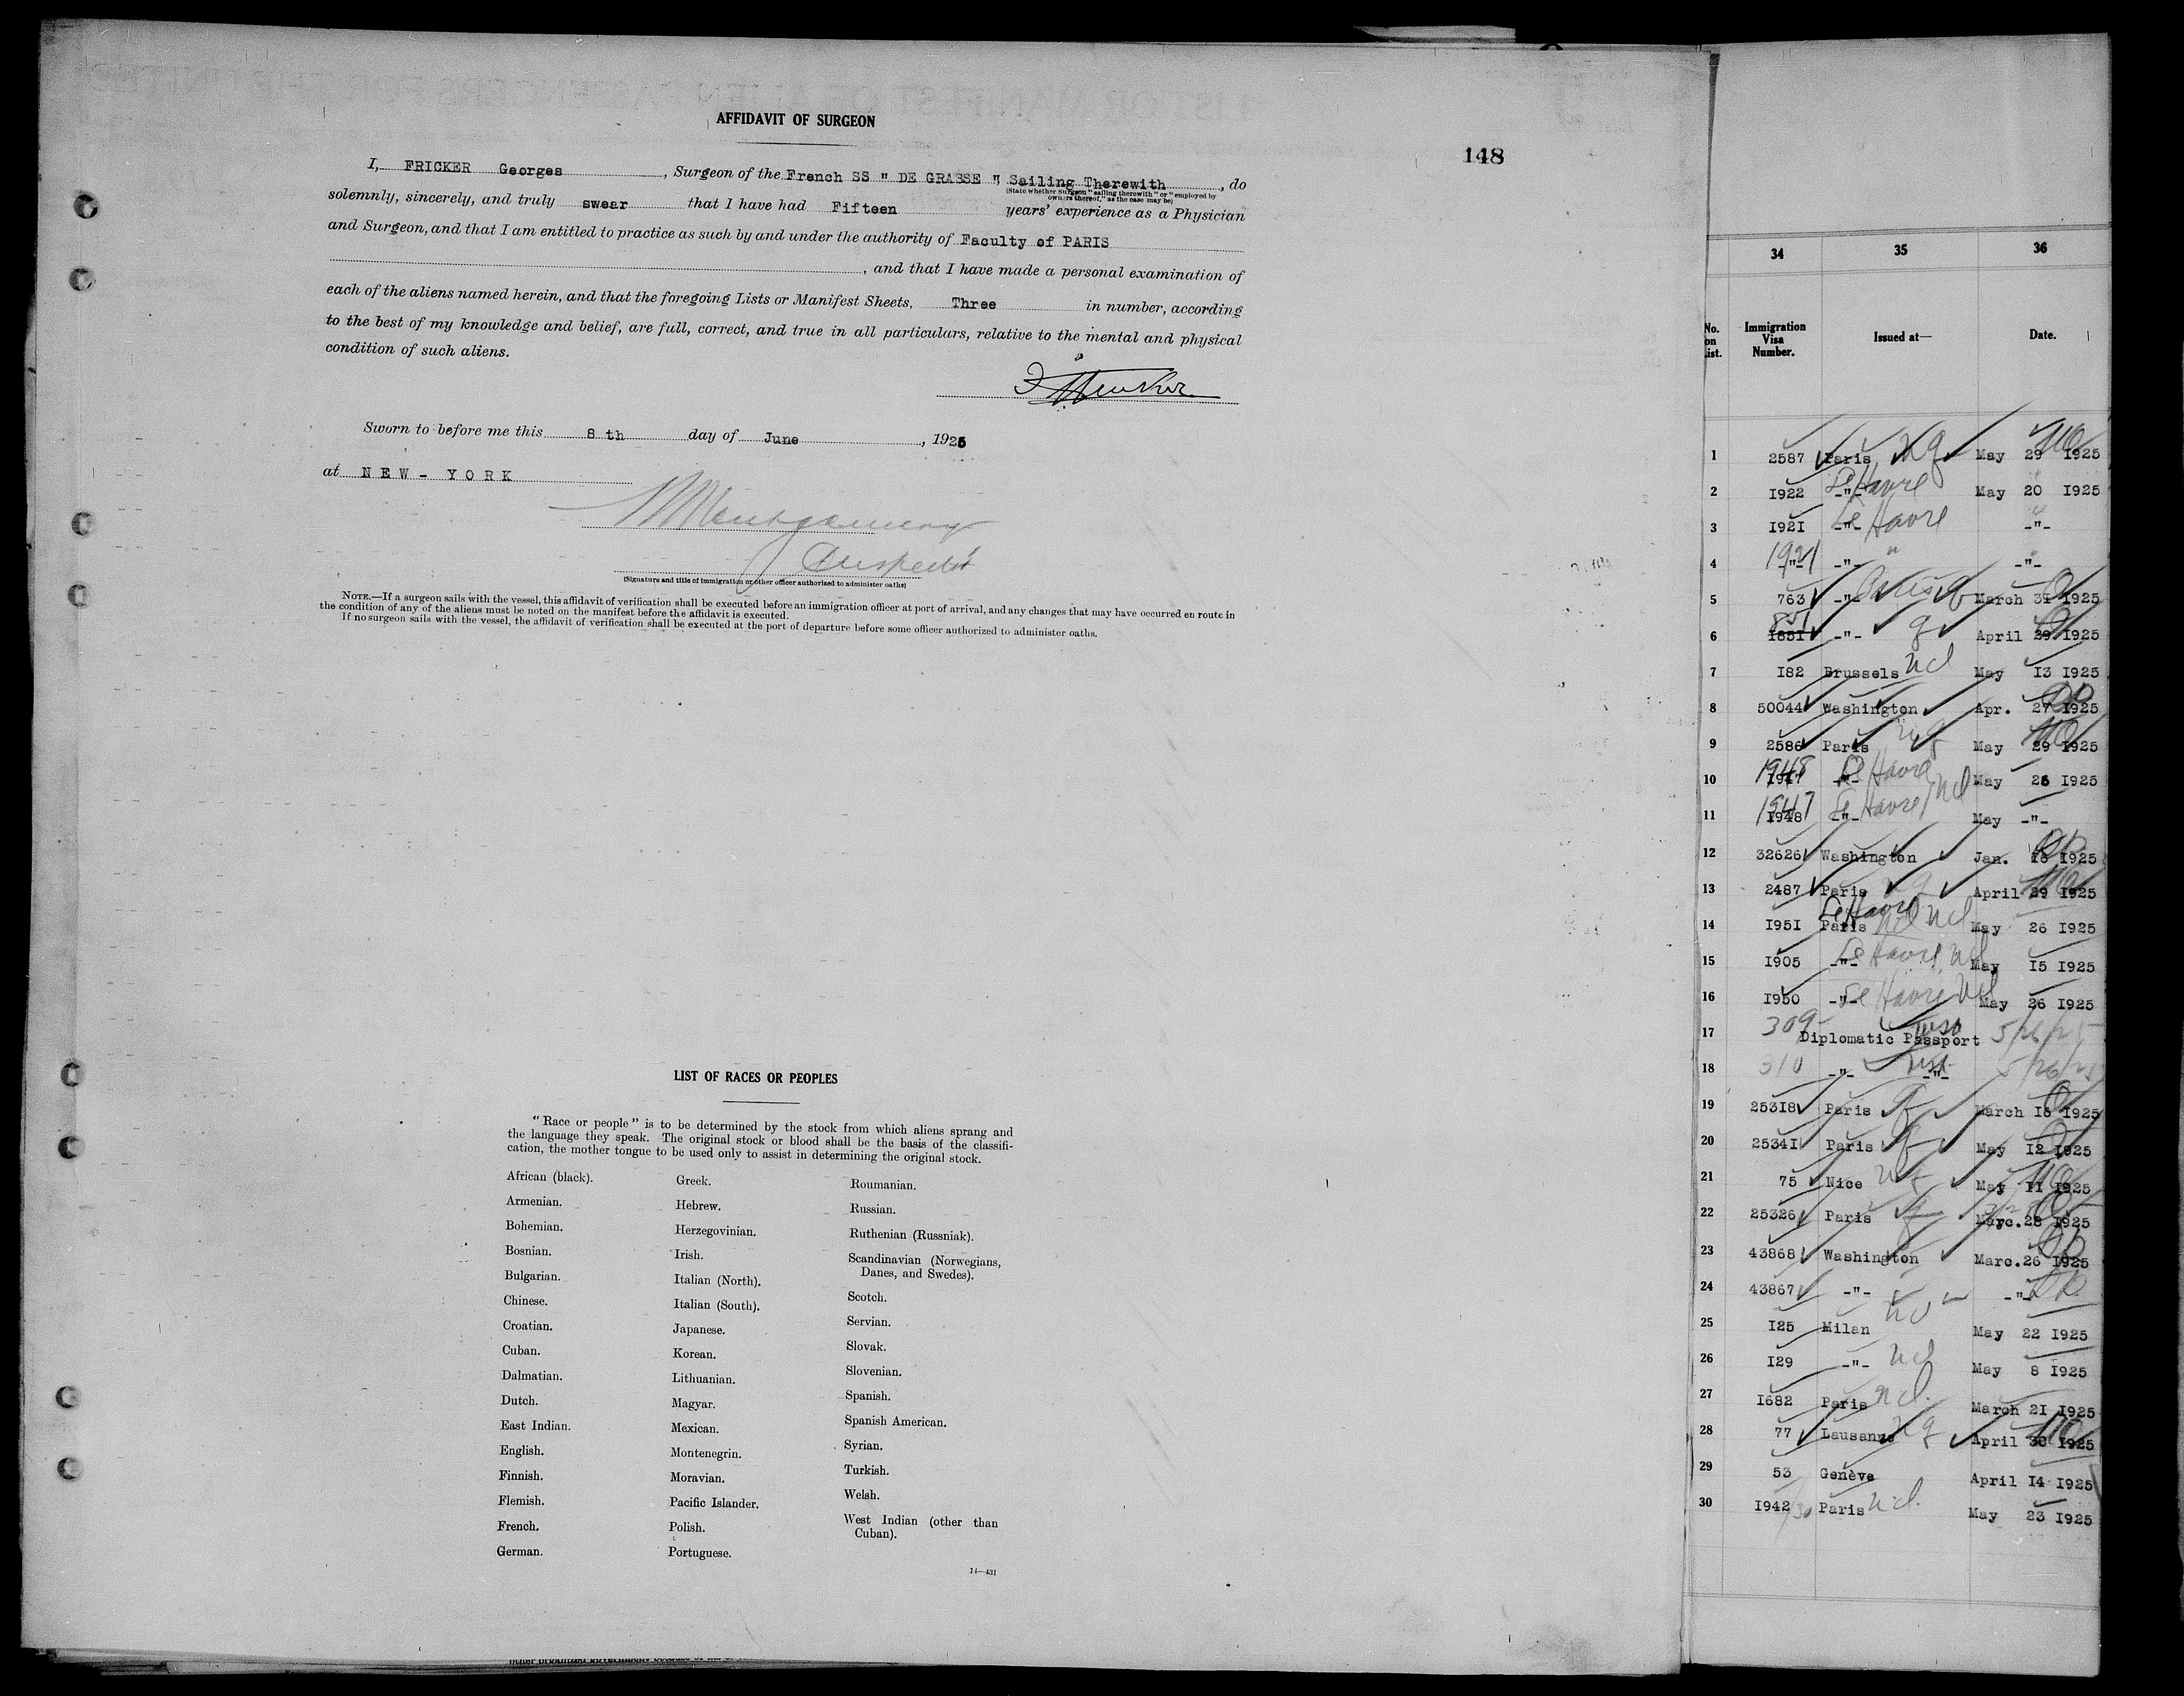 AFFIDAVIT OF SURGEON
148
I, FRICKER Georges, Surgeon of the French SS " DE GRASSE " Sailing Therewith, do
(State whether Surgeon "sailing therewith" or "employed by
owners thereof," as the case may be)
solemnly, sincerely, and truly swear that I have had Fifteen years' experience as a Physician
and Surgeon, and that I am entitled to practice as such by and under the authority of Faculty of PARIS
, and that I have made a personal examination of
each of the aliens named herein, and that the foregoing Lists or Manifest Sheets, Three in number, according
to the best of my knowledge and belief, are full, correct, and true in all particulars, relative to the mental and physical
condition of such aliens.
Sworn to before me this 8 th day of June, 1925
at NEW - YORK
Montgomery
Inspector
(Signature and title of immigration or other officer authorized to administer oaths)
NOTE.—If a surgeon sails with the vessel, this affidavit of verification shall be executed before an immigration officer at port of arrival, and any changes that may have occurred en route in
the condition of any of the aliens must be noted on the manifest before the affidavit is executed.
If no surgeon sails with the vessel, the affidavit of verification shall be executed at the port of departure before some officer authorized to administer oaths.
LIST OF RACES OR PEOPLES
"Race or people" is to be determined by the stock from which aliens sprang and
the language they speak. The original stock or blood shall be the basis of the classifi-
cation, the mother tongue to be used only to assist in determining the original stock.
African (black).
Armenian.
Bohemian.
Bosnian.
Bulgarian.
Chinese.
Croatian.
Cuban.
Dalmatian.
Dutch.
East Indian.
English.
Finnish.
Flemish.
French.
German.
Greek.
Hebrew.
Herzegovinian.
Irish.
Italian (North).
Italian (South).
Japanese.
Korean.
Lithuanian.
Magyar.
Mexican.
Montenegrin.
Moravian.
Pacific Islander.
Polish.
Portuguese.
Roumanian.
Russian.
Ruthenian (Russniak).
Scandinavian (Norwegians,
Danes, and Swedes).
Scotch.
Servian.
Slovak.
Slovenian.
Spanish.
Spanish American.
Syrian.
Turkish.
Welsh.
West Indian (other than
Cuban).
14—431
34 35 36
No. on List. Immigration Visa Number. Issued at— Date.
1 2587 Paris nq May 29 1925
2 1922 -"- Le Havre May 20 1925
3 1921 -"- Le Havre -"-
4 1921 -"- " -"-
5 763 -"- Paris q March 31 1925
6 1851 851 -"- q April 29 1925
7 182 Brussels ncl May 13 1925
8 50044 Washington Apr. 27 1925
9 2586 Paris nq May 29 1925
10 1947 1948 -"- Le Havre May 26 1925
11 1948 1947 -"- Le Havre ncl May -"-
12 32626 Washington Jan. 1925
13 2487 Paris nq April 29 1925
14 1951 Paris Le Havre ncl May 26 1925
15 1905 -"- Le Havre ncl May 15 1925
16 1950 -"- Le Havre ncl May 26 1925
17 309 Diplomatic Passport 5/26/25
18 310 -"- -"- 5/26/25
19 25318 Paris q March 1925
20 25341 Paris q May 12 1925
21 75 Nice nq May 11 1925
22 25326 Paris q 28 1925
23 43868 Washington Marc. 26 1925
24 43867 -"- -"-
25 125 Milan May 22 1925
26 129 -"- ncl May 8 1925
27 1682 Paris ncl. March 21 1925
28 77 Lausanne nq April 30 1925
29 53 Genève April 14 1925
30 1942 Paris ncl. May 23 1925